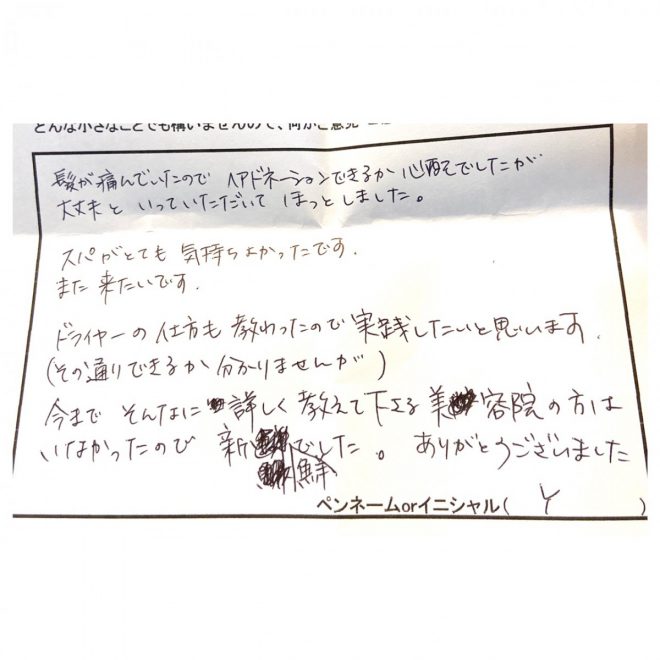 どんな小さなことでも構いませんので、何かご意見
髪が痛んでいたので ヘアドネーションできるか 心配でしたが
大丈夫と いっていただいて ほっとしました。
スパがとても 気持ちよかったです.
また 来たいです.
ドライヤーの仕方も 教わったので 実践したいと思います.
(その通りできるか 分かりませんが)
今まで そんなに 詳しく 教えて下さる 美容院の方は
いなかったので 新鮮でした。 ありがとうございました
ペンネームorイニシャル( Y )